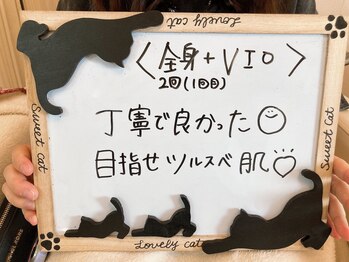 Lovely cat
〈全身+VIO〉
2回(1回目)
丁寧で良かった☺
目指せツルスベ肌♡
Sweet Cat
Sweet Cat
Lovely cat